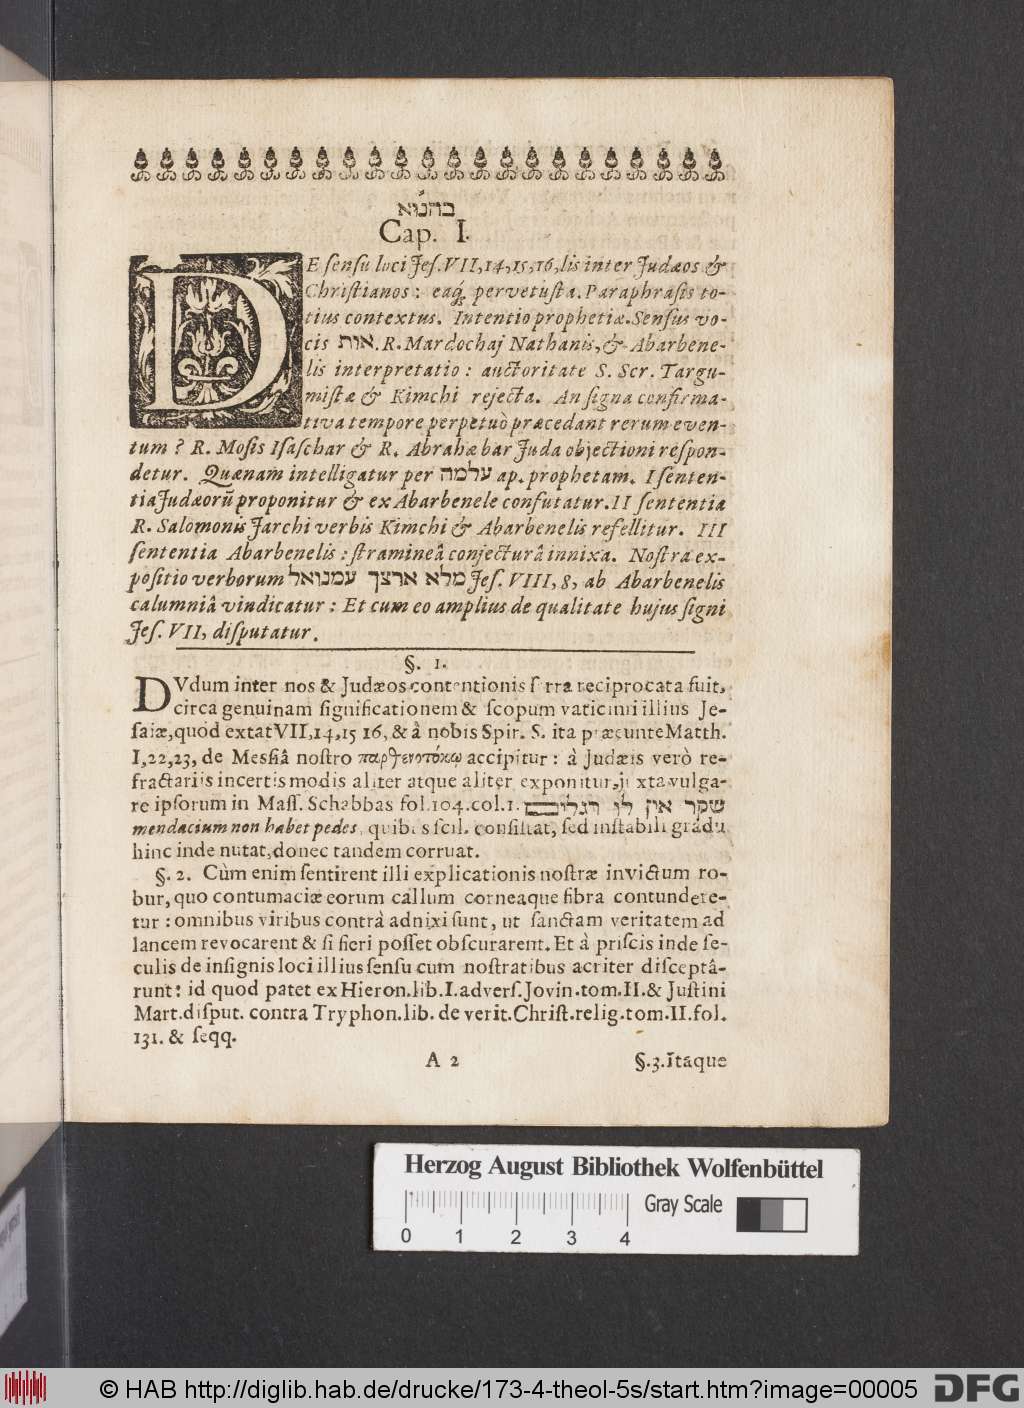 בהנו׳א
Cap. I.
DE sensu loci Jes. VII, 14, 15, 16, lis inter Judæos &
Christianos: eaq; pervetusta. Paraphrasis to-
tius contextus. Intentio prophetiæ. Sensus vo-
cis אות. R. Mardochaj Nathanis, & Abarbene-
lis interpretatio: auctoritate S. Scr. Targu-
mistæ & Kimchi rejecta. An signa confirma-
tiva tempore perpetuò præcedant rerum even-
tum? R. Mosis Isaschar & R. Abrahæ bar Juda objectioni respon-
detur. Quænam intelligatur per עלמה ap. prophetam. I senten-
tia Judæorū proponitur & ex Abarbenele confutatur. II sententia
R. Salomonis Jarchi verbis Kimchi & Abarbenelis refellitur. III
sententia Abarbenelis: stramineâ conjecturâ innixa. Nostra ex-
positio verborum מלא ארצך עמנואל Jes. VIII, 8, ab Abarbenelis
calumniâ vindicatur: Et cum eo amplius de qualitate hujus signi
Jes. VII, disputatur.
§. 1.
DVdum inter nos & Judæos contentionis serra reciprocata fuit,
circa genuinam significationem & scopum vaticinii illius Je-
saiæ, quod extat VII, 14, 15 16, & à nobis Spir. S. ita præeunte Matth.
I, 22, 23, de Messiâ nostro παρθενοτόκῳ accipitur: à Judæis verò re-
fractariis incertis modis aliter atque aliter exponitur, juxta vulga-
re ipsorum in Mass. Schabbas fol. 104. col. 1. שקר אין לו רגלים
mendacium non habet pedes, quibus scil. consistat, sed instabili gradu
hinc inde nutat, donec tandem corruat.
§. 2. Cùm enim sentirent illi explicationis nostræ invictum ro-
bur, quo contumaciæ eorum callum corneaque fibra contundere-
tur: omnibus viribus contrà adnixi sunt, ut sanctam veritatem ad
lancem revocarent & si fieri posset obscurarent. Et à priscis inde se-
culis de insignis loci illius sensu cum nostratibus acriter disceptâ-
runt: id quod patet ex Hieron. lib. I. advers. Jovin. tom. II. & Justini
Mart. disput. contra Tryphon. lib. de verit. Christ. relig. tom. II. fol.
131. & seqq.
A 2 §. 3. Itaque
Herzog August Bibliothek Wolfenbüttel
Gray Scale
0 1 2 3 4
© HAB http://diglib.hab.de/drucke/173-4-theol-5s/start.htm?image=00005 DFG